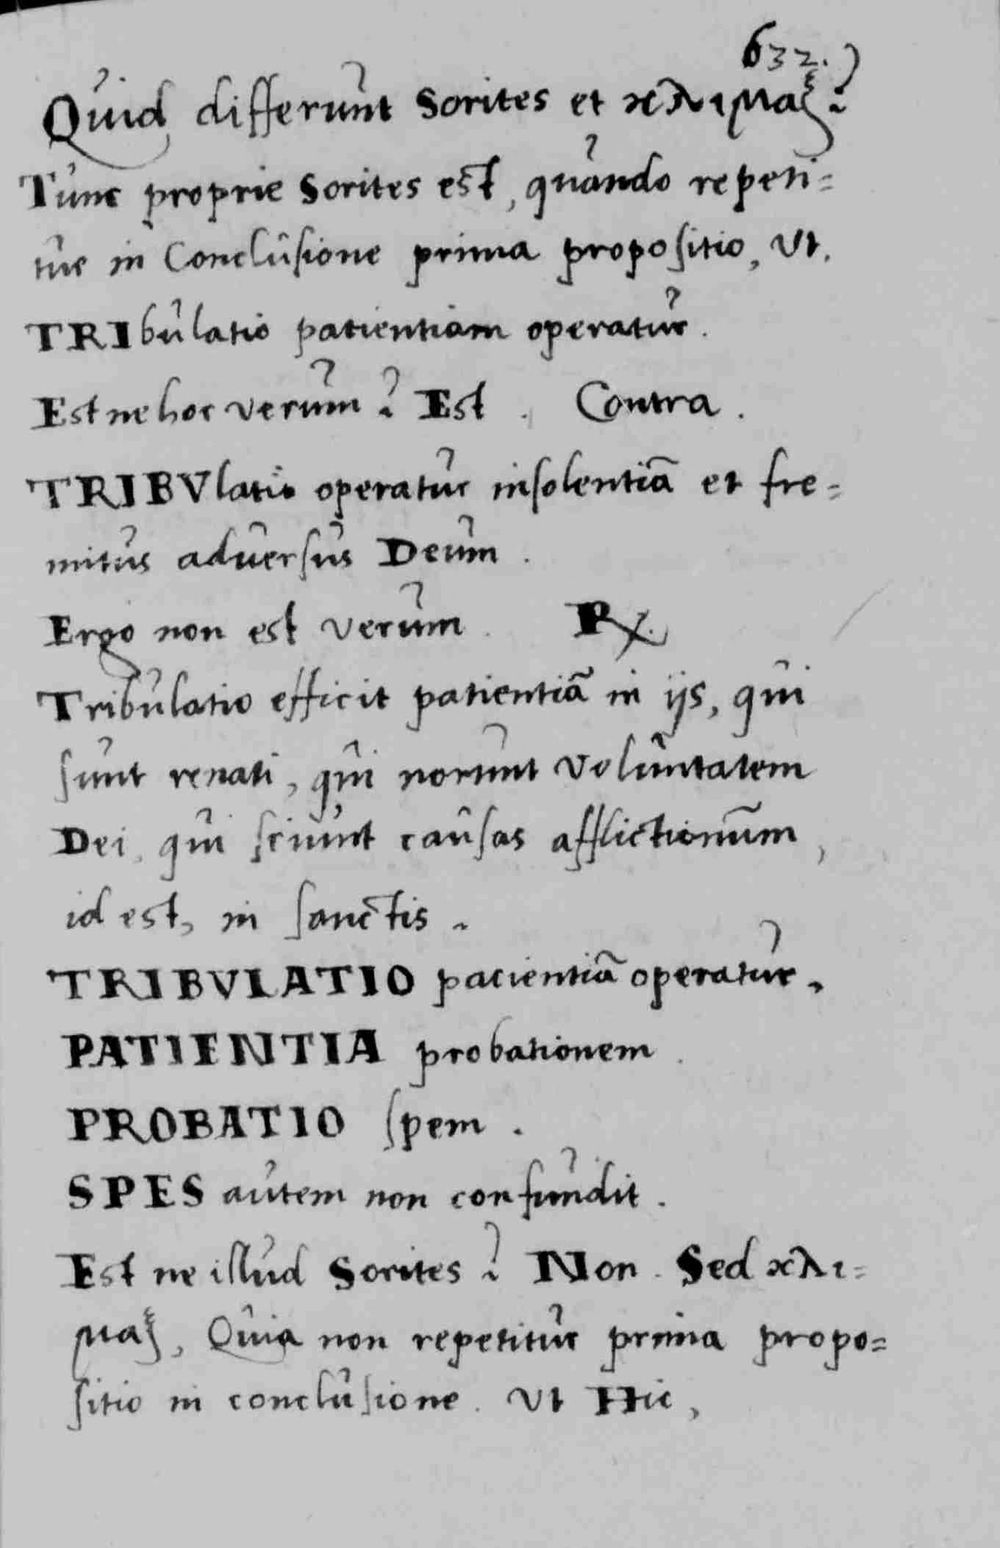 632.
Quid differunt Sorites et κλιμαξ?
Tunc proprie Sorites est, quando repeti=
tur in Conclusione prima propositio, Ut.
TRIbulatio patientiam operatur.
Est ne hoc verum? Est. Contra.
TRIBVlatio operatur insolentiā et fre=
mitus adversus Deum.
Ergo non est verum. R̶x.
Tribulatio efficit patientiā in ijs, qui
sunt renati, qui norunt voluntatem
Dei, qui sciunt causas afflictionum,
id est, in sanctis.
TRIBVLATIO pacientiā operatur.
PATIENTIA probationem.
PROBATIO spem.
SPES autem non confundit.
Est ne illud Sorites? Non. Sed κλι=
μαξ, Quia non repetitur prima propo=
sitio in conclusione. Ut Hic,